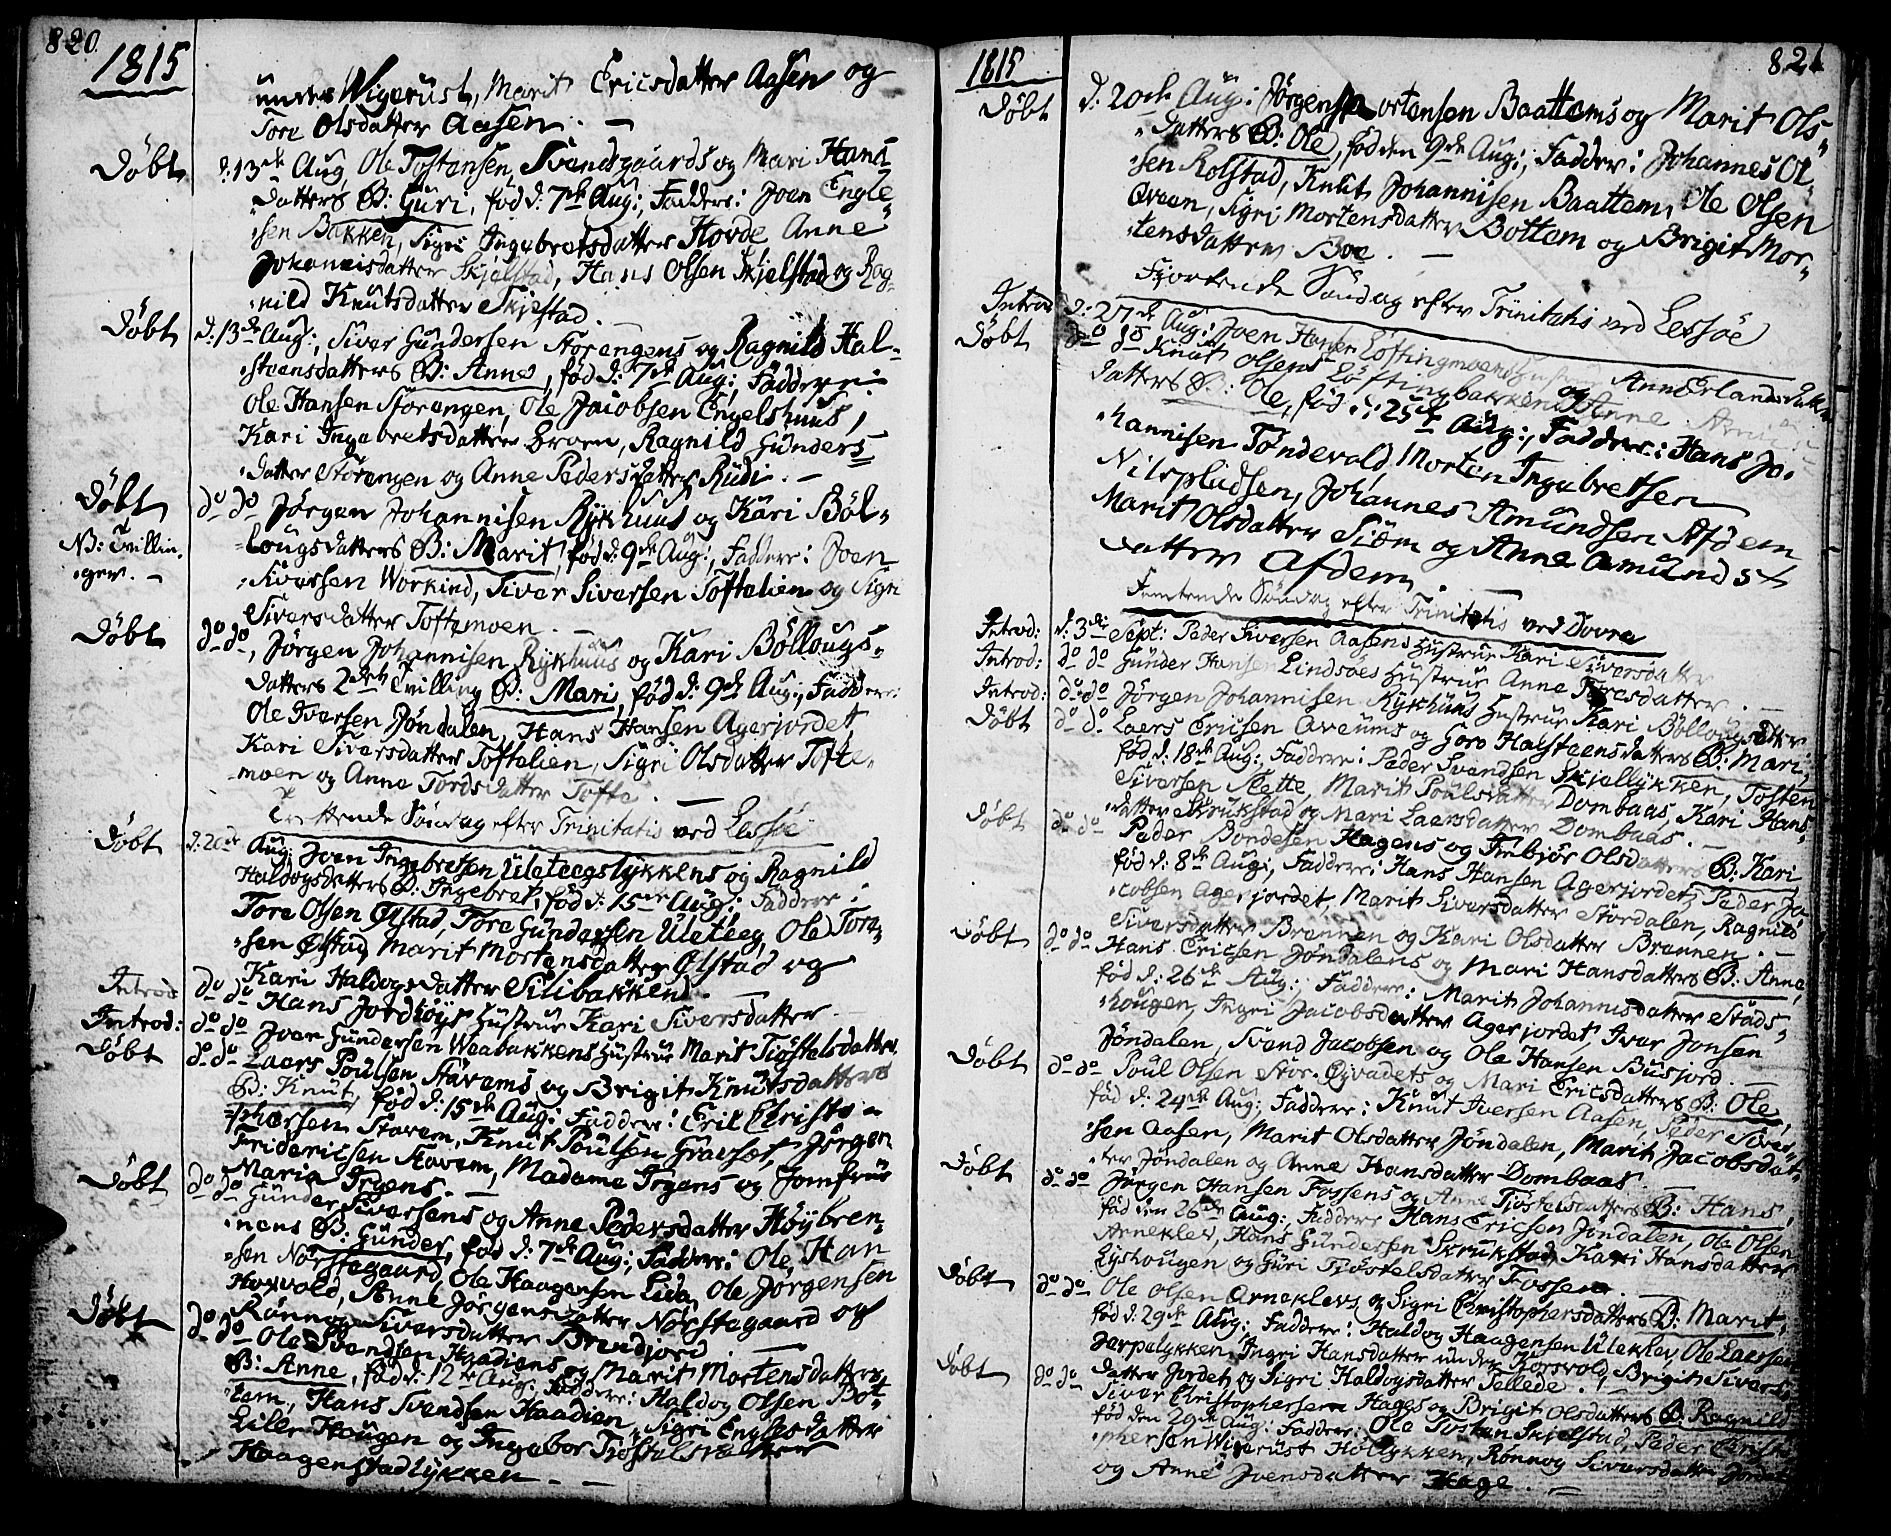 820.
1815
under Wigerust, Marit Ericsdatter Aasen og
Tore Olsdatter Aasen. —
Døbt d: 13de Aug Ole Tostensen Svendsgaards og Mari Hans
datters B: Guri, fød d: 7de Aug:, Faddere: Joen Engle
sen Bakken, Sigri Ingebretsdatter Hovde Anne
Johannisdatter Skjelstad, Hans Olsen Skjelstad og Rag
nild Knutsdatter Skjestad.
Døbt d: 13de Aug:, Siver Gundersen Storengens og Ragnild Hal
steensdatters B: Anne, fød d: 7de Aug:, Faddere:
Ole Hansen Storengen, Ole Jacobsen Engelshuus,
Kari Ingebretsdatter Broen, Ragnild Gunders
datter Storengen og Anne Pedersdatter Rudi. —
Døbt do do Jørgen Johannisen Rykhuus og Kari Böl
NB: Tvillin lougsdatters B: Marit, fød d: 9de Aug:, Faddere: Joen
ger. — Siversen Workind, Siver Siversen Toftelien og Sigri
Siversdatter Toftemoen.
Døbt do do, Jørgen Johannisen Rykhuus og Kari Böllougs
datters 2den Tvilling B: Mari, fød d: 9de Aug:, Faddere:
Ole Iversen Jøndalen, Hans Hansen Agerjordet,
Kari Siversdatter Toftelien, Sigri Olsdatter Tofte
moen og Anne Tordsdatter Tofte. —
Trettende Søndag efter Trinitatis ved Lessøe
Døbt d: 20de Aug: Joen Ingebretsen Uleteegslykkens og Ragnild
Haldogsdatters B: Ingebret, fød d: 15de Aug:, Faddere:
Tore Olsen Ølstad, Tore Gundersen Uleteeg, Ole Tore
sen Ølstad, Marit Mortensdatter Ølstad og
Kari Haldogsdatter Silibakken.
Introd do do Hans Jordhöys Hustrue Kari Siversdatter —
Introd: do do Joen Gundersen Waabakkens Hustrue Marit Tjøstelsdatter
Døbt do do Laers Poulsen Stavems og Brigit Knutsdatters
B: Knut, fød d: 15de Aug: Faddere: Eric Christo
phersen Stavem, Knut Poulsen Gravset, Jørgen
Fridericsen Stavem, Madame Irgens og Jomfrue
Maria Irgens. —
Døbt do do Gunder Siversens og Anne Pedersdatter Høybren
nens B: Gunder, fød d: 7de Aug:, Faddere: Ole Han
sen Norstegaard, Ole Haagensen Lida, Ole Jørgensen
Hoxvold, Anne Jørgensdatter Norstegaard og
Rønnog Siversdatter Brendjord. —
Døbt do do Ole Svendsen Haadiens og Marit Mortensdatters
B: Anne, fød d: 12te Aug: Faddere: Haldog Olsen Bot
tem, Hans Svendsen Haadien, Sigri Englesdatter
Lille Haugen og Ingebor Tjøstelsdatter
Haagenstadlykken —
1815
821
Døbt d: 20de Aug: Jørgen Mortensen Baattems og Marit Ols
datters B: Ole, fød den 9de Aug:, Faddere: Johannes Ol
sen Rolstad, Knut Johannisen Baattem, Ole Olsen
Øveen, Sigri Mortensdatter Bottem og Brigit Mor
tensdatter Boe. —
Fjortende Søndag efter Trinitatis ved Lessøe
Introd d: 27de Aug: Joen Hansen Løftingmoens Hustrue Anne Erlandsdatter
Døbt do do Knut Olsens Løftingbakken og Anne
datters B: Ole, fød d: 25de Aug:, Faddere: Hans Jo
hannisen Tøndevold, Morten Ingebretsen
Nilspladsen, Johannes Amundsen Afdem
Marit Olsdatter Siem og Anne Amunds
datter Afdem.
Femtende Søndag efter Trinitatis ved Dovre
Introd: d: 3die Sept: Peder Siversen Aasens Hustrue Kari Siversdatter
Introd: do do Gunder Hansen Lindsøes Hustrue Anne Toresdatter
Introd: do do Jørgen Johannisen Rykhuus Hustrue Kari Böllougsdatter
Døbt do do. Laers Ericsen Aveums og Goro Halsteensdatters B: Mari,
fød d: 18de Aug: Faddere: Peder Svendsen Skjellykken, Tosten
Siversen Slette, Marit Poulsdatter Dombaas, Kari Hans
datter Skrukstad og Mari Laersdatter Dombaas. —
Døbt do do Peder Bordesen Hagens og Imbjør Olsdatters B: Kari
fød d: 8de Aug:, Faddere: Hans Hansen Agerjordet, Peder Ja
cobsen Agerjordet, Marit Siversdatter Stordalen, Ragnild
Siversdatter Brennen og Kari Olsdatter Brennen. —
Døbt do do Hans Ericsen Jøndalens og Mari Hansdatters B: Anne,
fød d: 26de Aug: Faddere: Marit Johannisdatter Stads
hougen, Ingri Jacobsdatter Agerjordet, Iver Jonsen
Jøndalen, Svend Jacobsen og Ole Hansen Busjord. —
Døbt do do Poul Olsen Stor Eqvadets og Mari Ericsdatters B: Ole,
fød d: 24de Aug: Faddere: Knut Iversen Aasen, Peder Siver
sen Aasen, Marit Olsdatter Jøndalen, Marit Jacobsdat
ter Jøndalen og Anne Hansdatter Dombaas —
Døbt do do Jørgen Hansen Fossens og Anne Tjøstelsdatters B: Hans,
fød den 26de Aug: Faddere Hans Ericsen Jøndalen, Ole Olsen
Arneklev, Hans Gundersen Skrukstad, Kari Hansdatter
Lyshougen og Guri Tjøstelsdatter Fossen. —
Døbt do do Ole Olsen Arneklevs og Sigri Christophersdatters B: Marit,
fød d: 29de Aug: Faddere: Haldog Haagensen Uleklev, Ole Laersen
Jerpelykken, Ingri Hansdatter under Korsvold, Brigit Sivers
datter Jordet og Sigri Haldogsdatter Tellede.
Døbt do do Siver Christophersen Hages og Brigit Olsdatters B: Ragnild
fød den 29de Aug: Faddere: Ole Tosten Skjelstad, Peder Christo
phersen Wigerust Hollykken, Rønnog Siversdatter Jordet
og Anne Joensdatter Hage. —